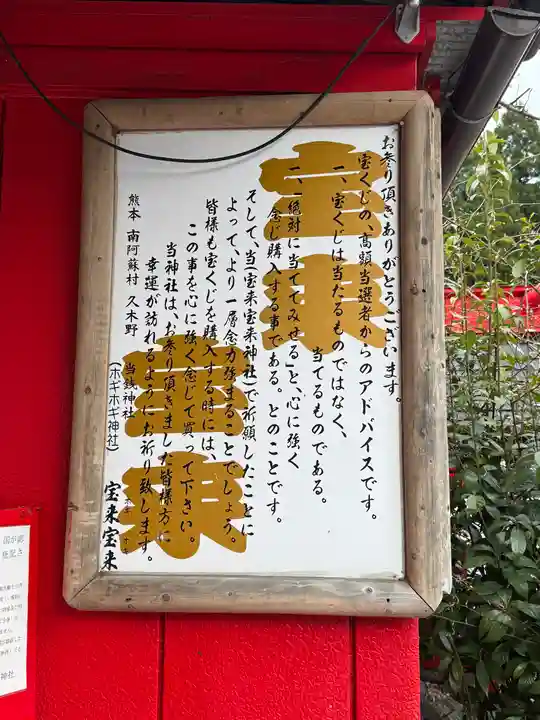 お参り頂きありがとうございます。
宝くじの、高額当選者からのアドバイスです。
一、宝くじは当たるものではなく、
当てるものである。
一、「絶対に当ててみせる」と、心に強く
念じ購入する事である。とのことです。
そして、当(宝来宝来神社)で祈願したことに
よって、より一層念力強まることでしょう。
皆様も宝くじを購入する時には、
この事を心に強く念じて買って下さい。
当神社は、お参り頂きました皆様方に
幸運が訪れるようにお祈り致します。
熊本 南阿蘇村 久木野
当銭神社
(ホギホギ神社)
宝来宝来
ホギ ホギ
宝来
宝来